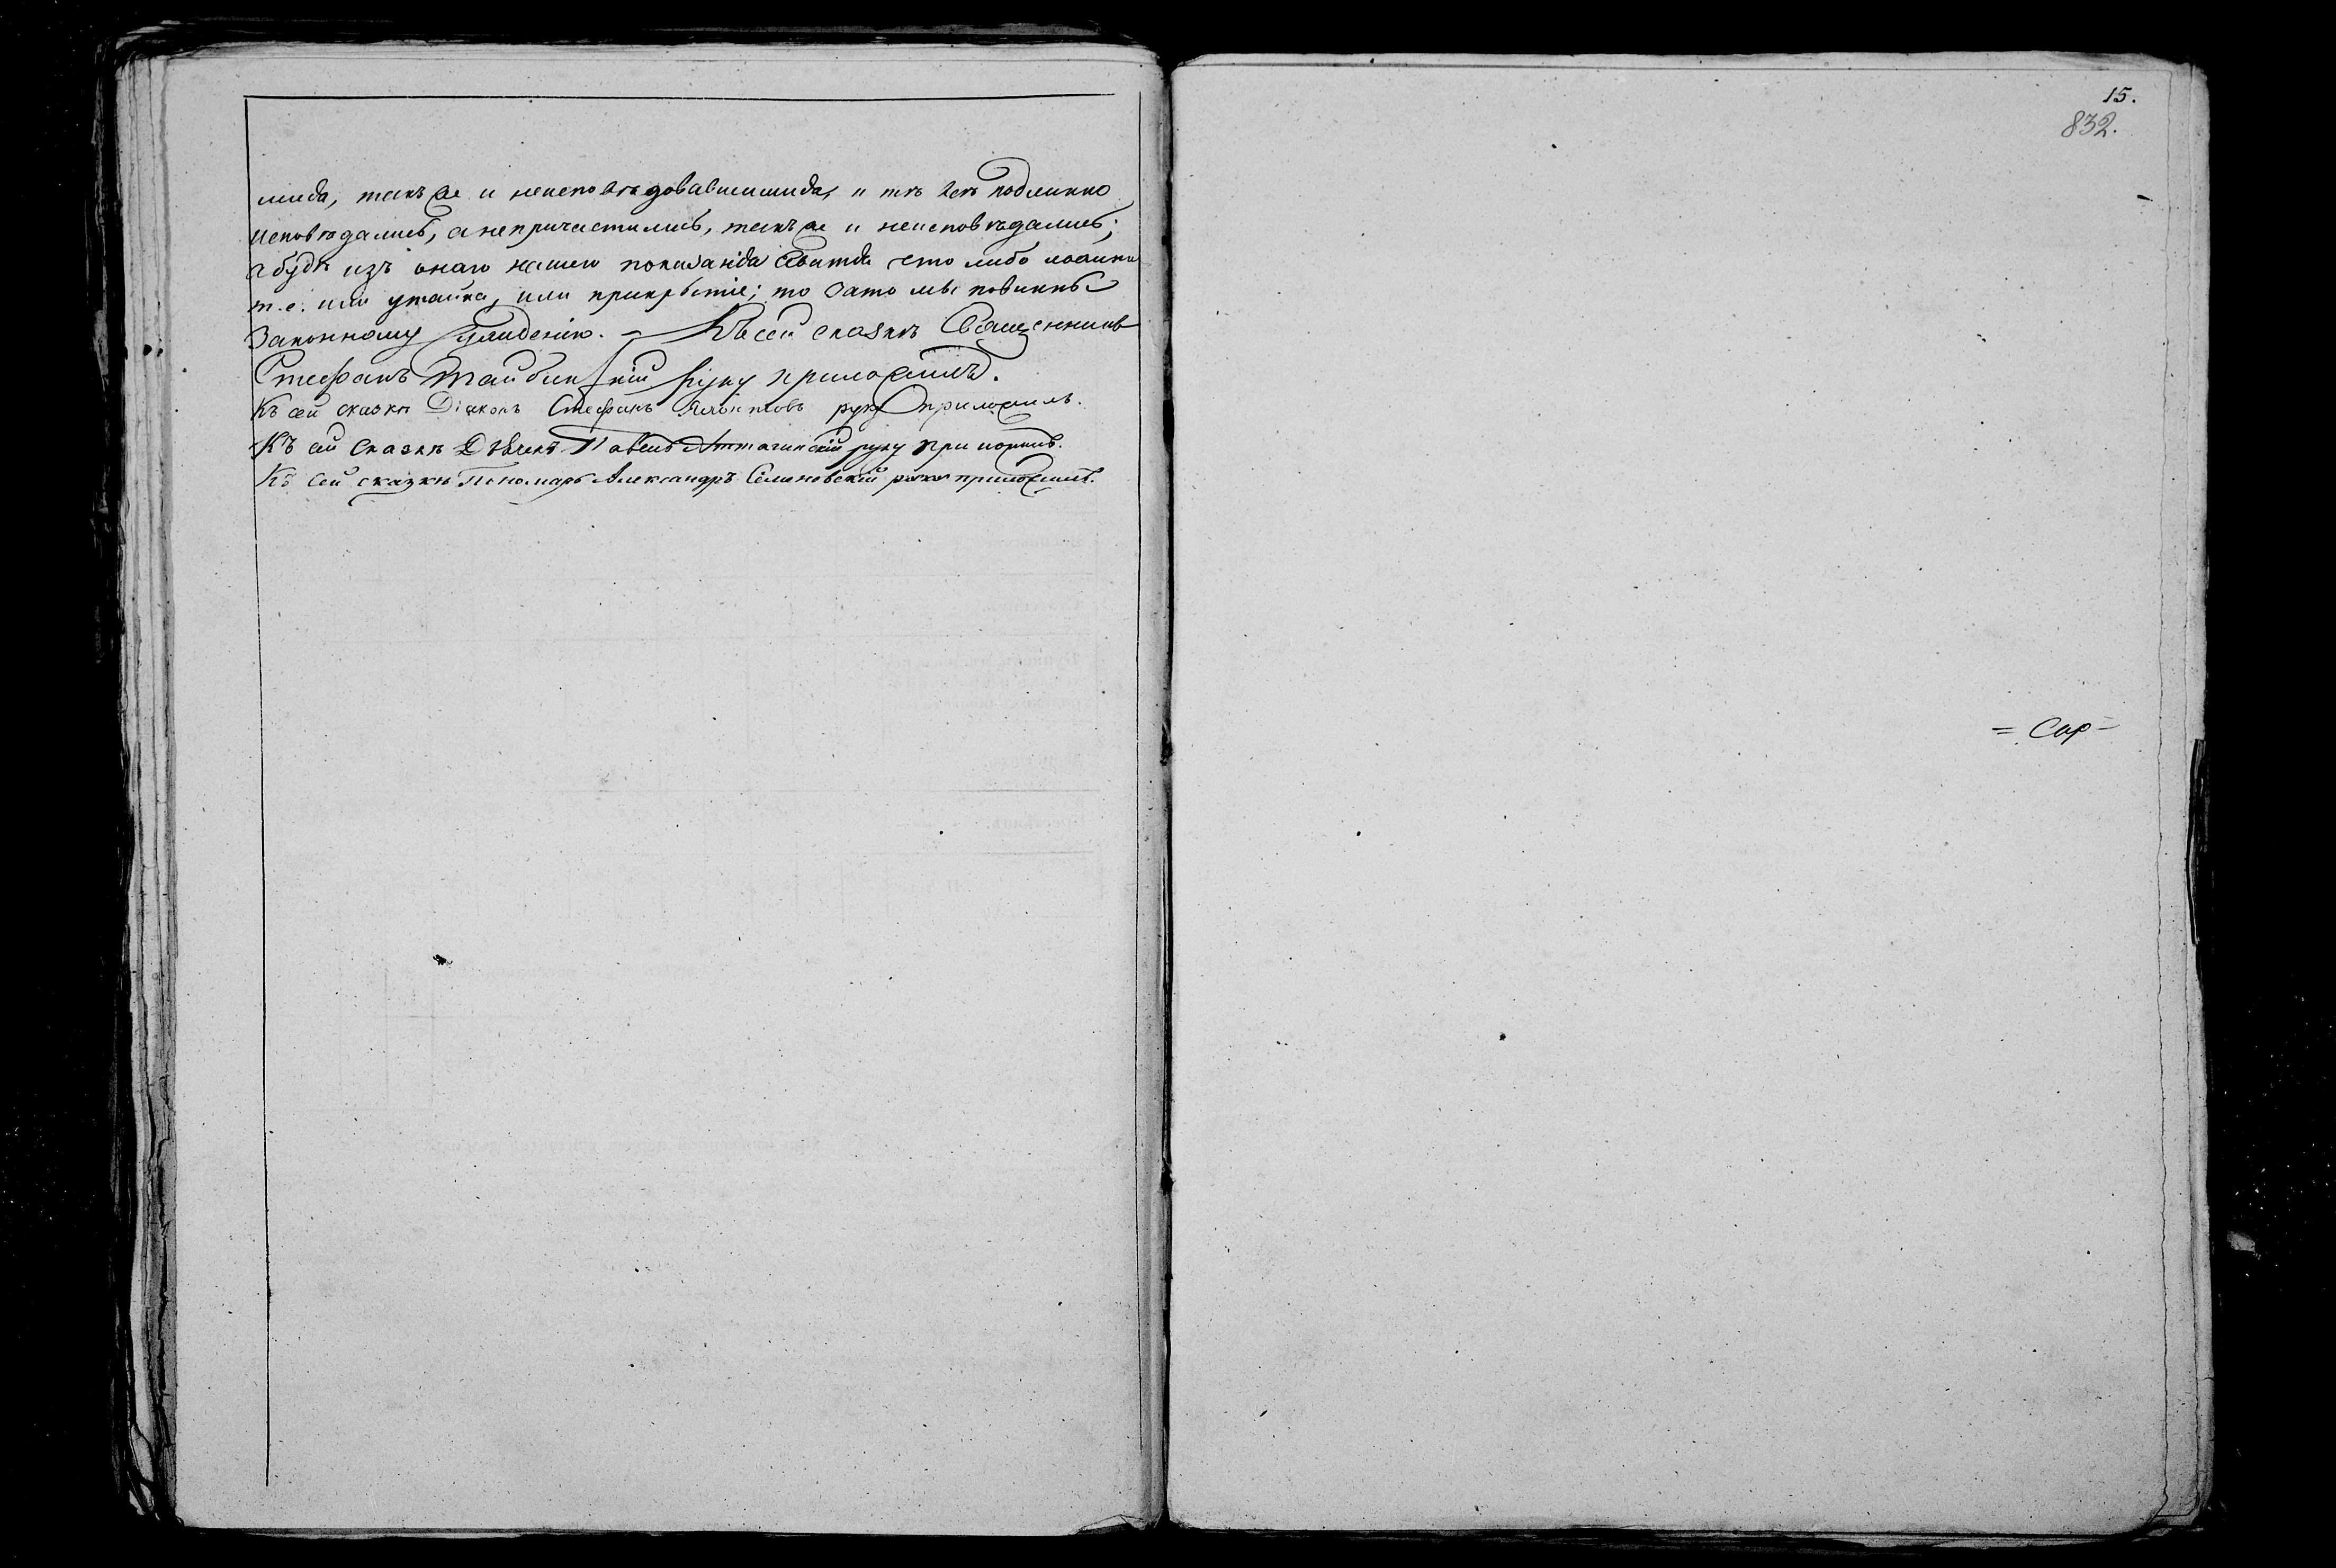 мися, такъ же и неисповѣдовавшимися, и тѣ всѣ подлинно
исповѣдались, а непричастились, такъ же и неисповѣдались;
а будѣ изъ онаго нашего показанія явится что либо ложно
т.е. или утайка, или прикрытіе; то зато мы повинны
Законному сужденію. – Къ сей сказкѣ Священникъ
Стефанъ руку приложилъ.
Къ сей сказкѣ Діаконъ Стефанъ руку приложилъ.
Къ сей сказкѣ Дьячекъ Павелъ руку приложилъ.
Къ сей сказкѣ Пономарь Александръ Семеновскій руку приложилъ.
15.
832.